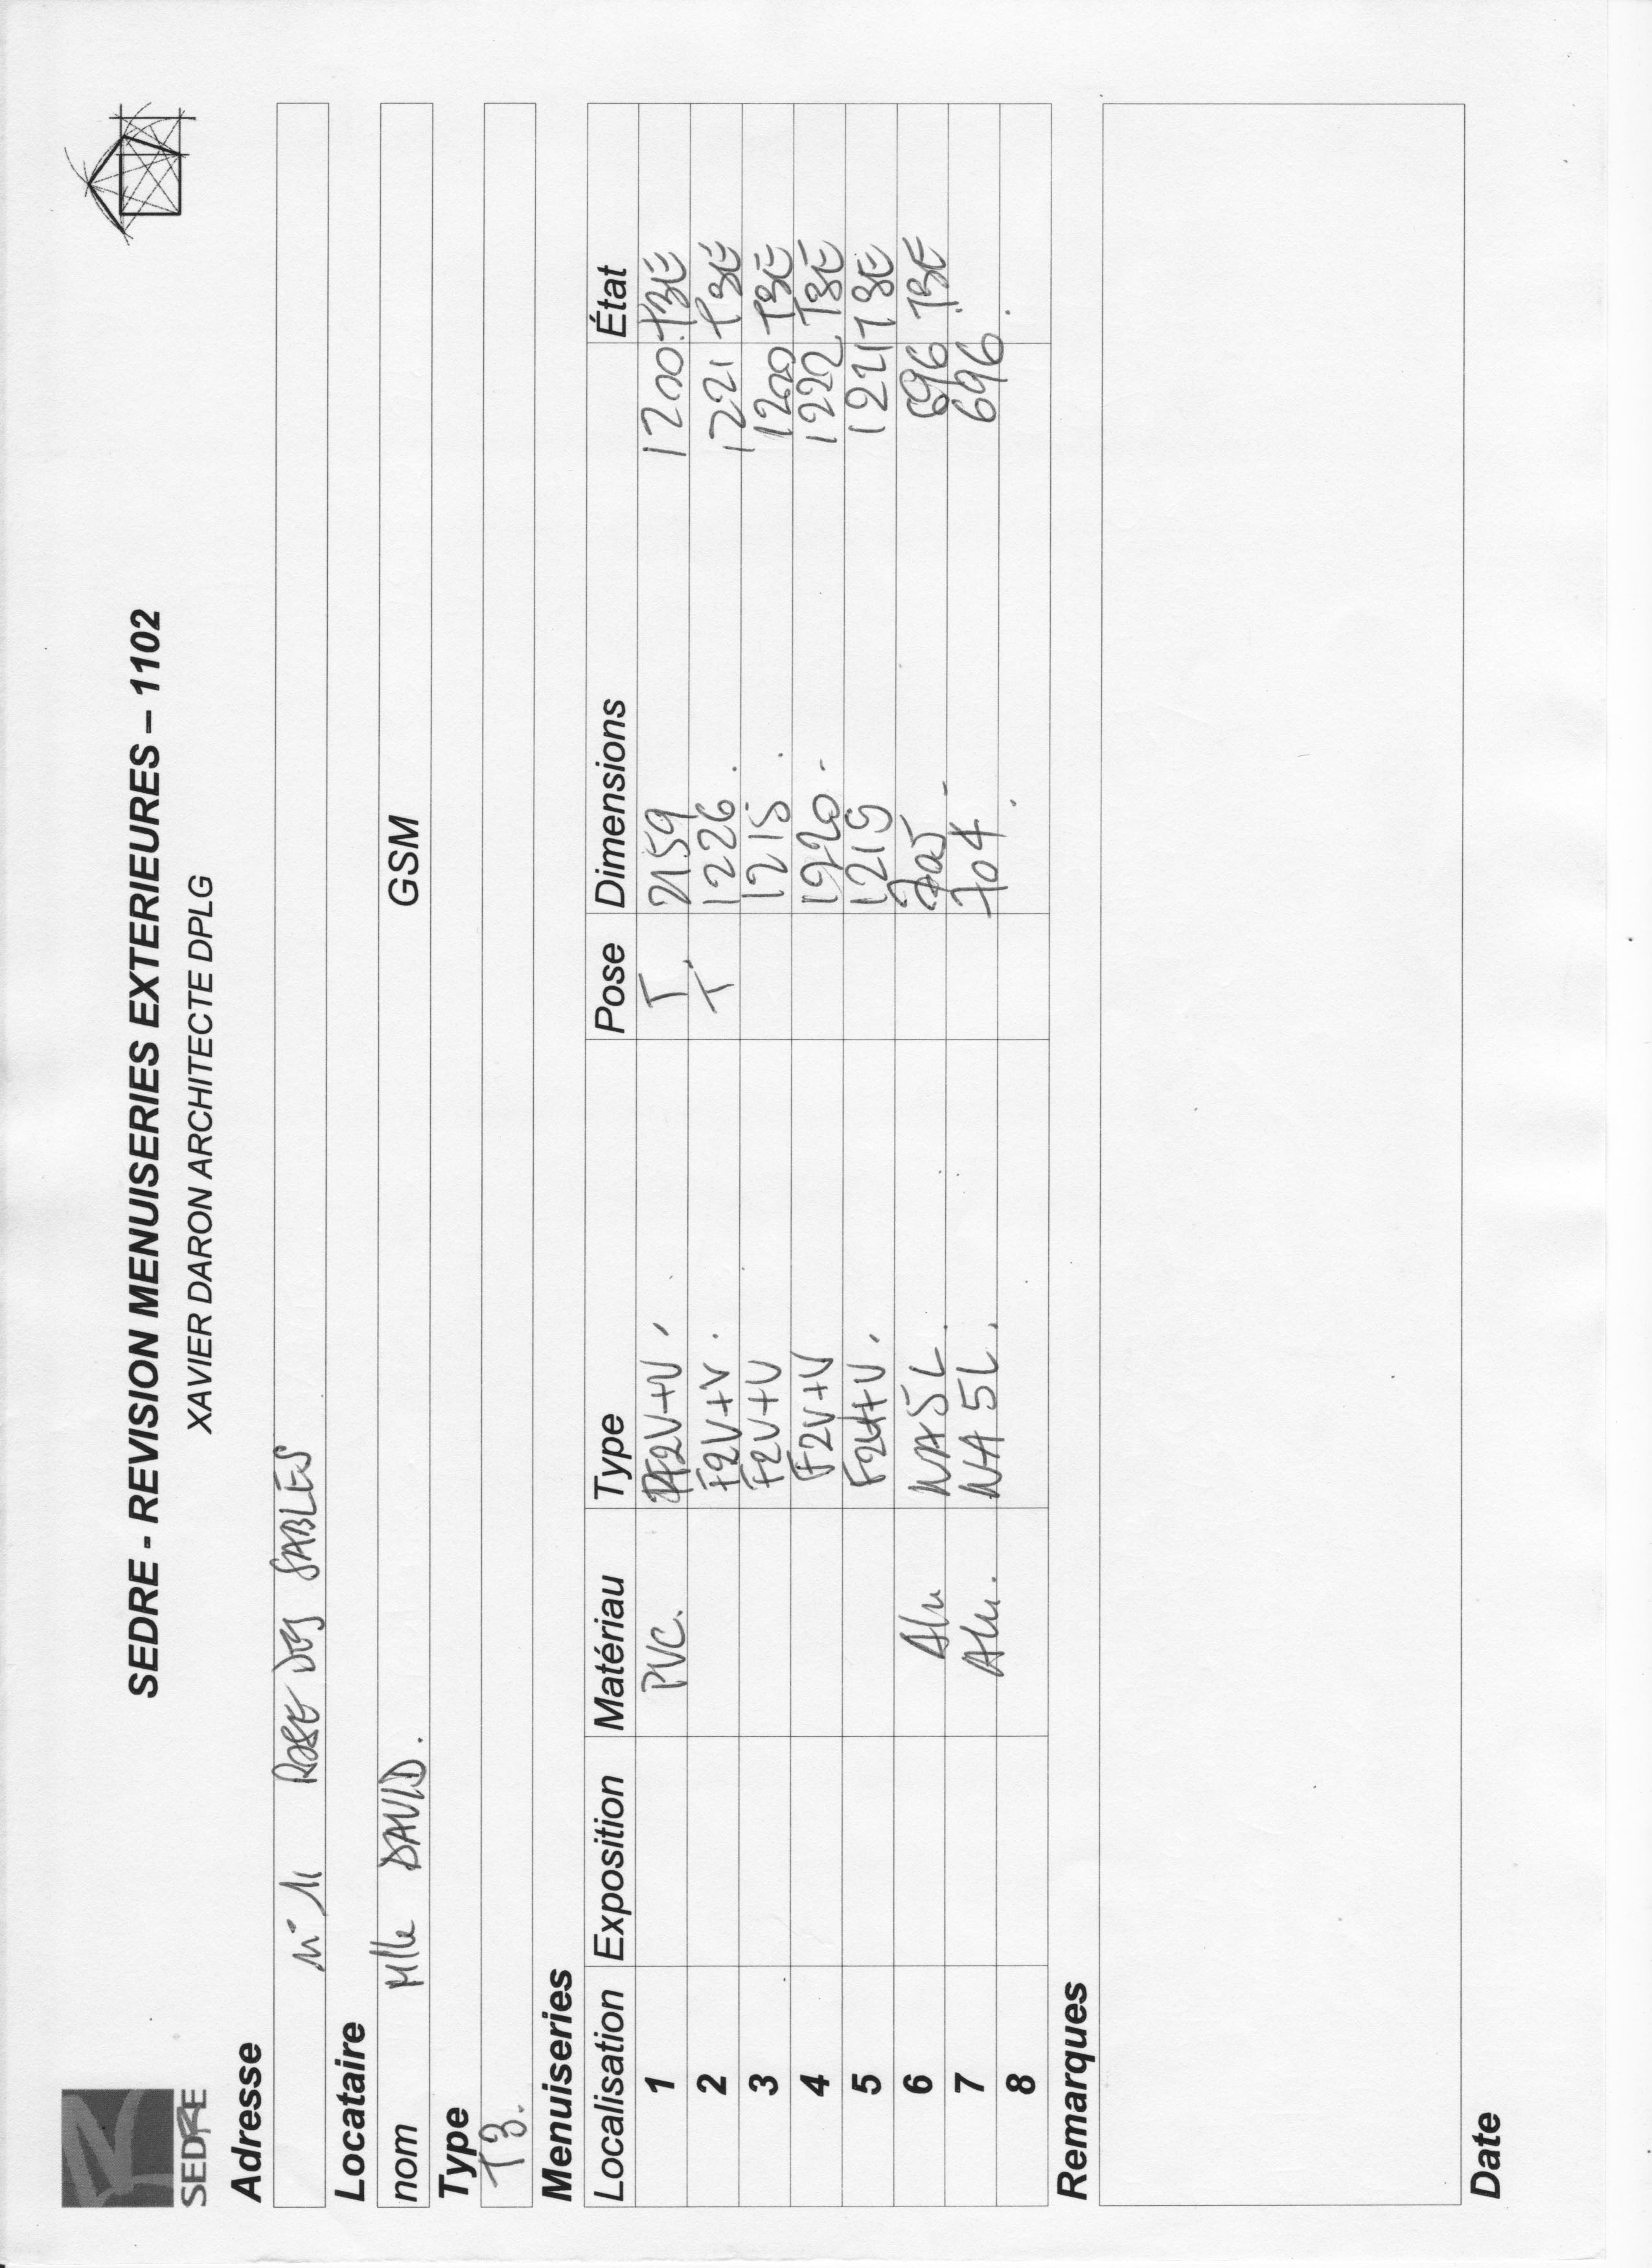 SEDRE
SEDRE - REVISION MENUISERIES EXTERIEURES – 1102
XAVIER DARON ARCHITECTE DPLG
Adresse
n° 11 ROSE DES SABLES
Locataire
nom Mlle DAVID. GSM
Type
T3.
Menuiseries
Localisation Exposition Matériau Type Pose Dimensions État
1 PVC. PF2V+V. T. 2159 1200 TBÉ
2 F2V+V. T 1226. 1221 TBÉ
3 F2V+V 1215. 1200 TBÉ
4 F2V+V 1220. 1222 TBÉ
5 F2V+V. 1219 1221 TBE
6 Alu NA5L. 705 696 TBE
7 Alu. NA5L. 704 696.
8
Remarques
Date